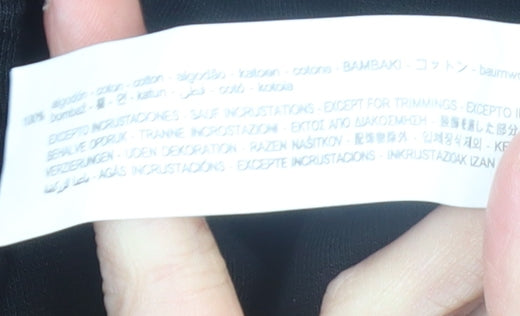 100% algodón - coton - cotton - algodão - katoen - cotone - BAMBAKI - コットン - baumw
bombaž - 棉 - 면 - katun - قطن - cotó - kotoia
EXCEPTO INCRUSTACIONES - SAUF INCRUSTATIONS - EXCEPT FOR TRIMMINGS - EXCEPTO I
BEHALVE OPDRUK - TRANNE INCRUSTAZIONI - ΕΚΤΟΣ ΑΠΟ ΔΙΑΚΟΣΜΗΣΗ - 装飾を除いた部分
VERZIERUNGEN - UDEN DEKORATION - RAZEN NAŠITKOV - 配饰物除外 - 입체장식제외 - KE
- AGÁS INCRUSTACIÓNS - EXCEPTE INCRUSTACIONS - INKRUSTAZIOAK IZAN